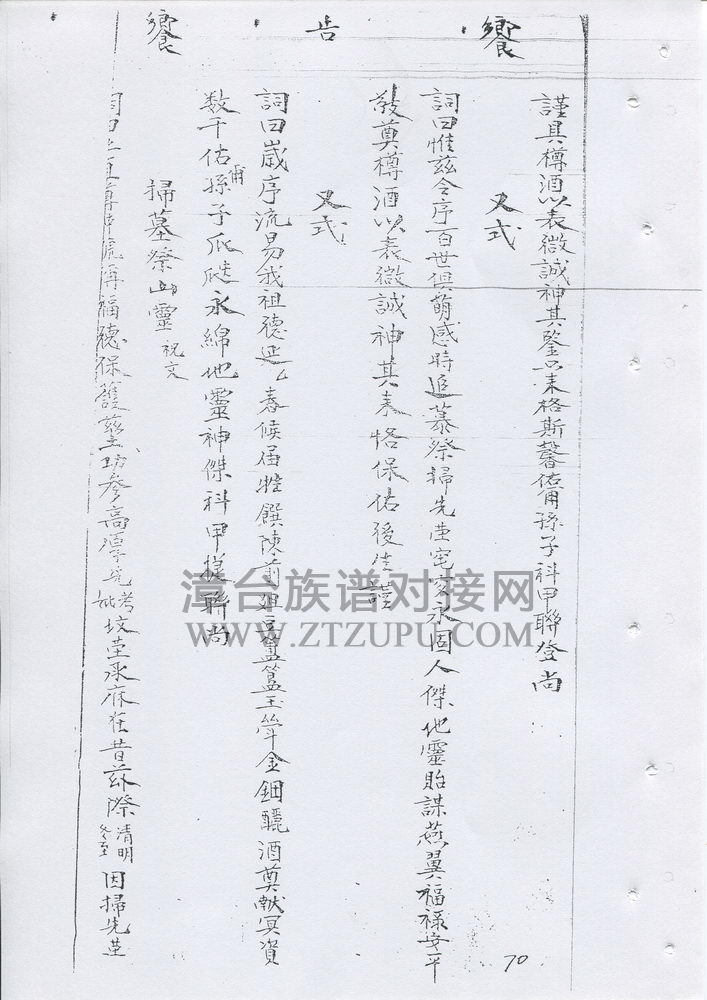 謹具樽酒以表微誠神其鑒以來格斯馨佑甫孫子科甲聯登尚
饗
又式
詞曰惟茲令序百世俱萌感時追慕祭掃先塋窀穸永固人傑地靈貽謀燕翼福祿安平
敬奠樽酒以表微誠神其來恪保佑後生謹
告
又式
詞曰歲序流易我祖德延 春候届惟饌陳前俎豆簠簋玉斝金鈿釃酒奠獻冥資
数千佑甫孫子瓜瓞永綿地靈神傑科甲 聯尚
饗
掃墓祭山靈祝文
福德保護茲土功參高厚先考妣墳塋承庥在昔茲際清明冬至因掃先塋
70
漳台族谱对接网
WWW.ZTZUPU.COM